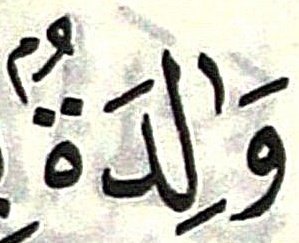 وَٰلِدَةُۢ